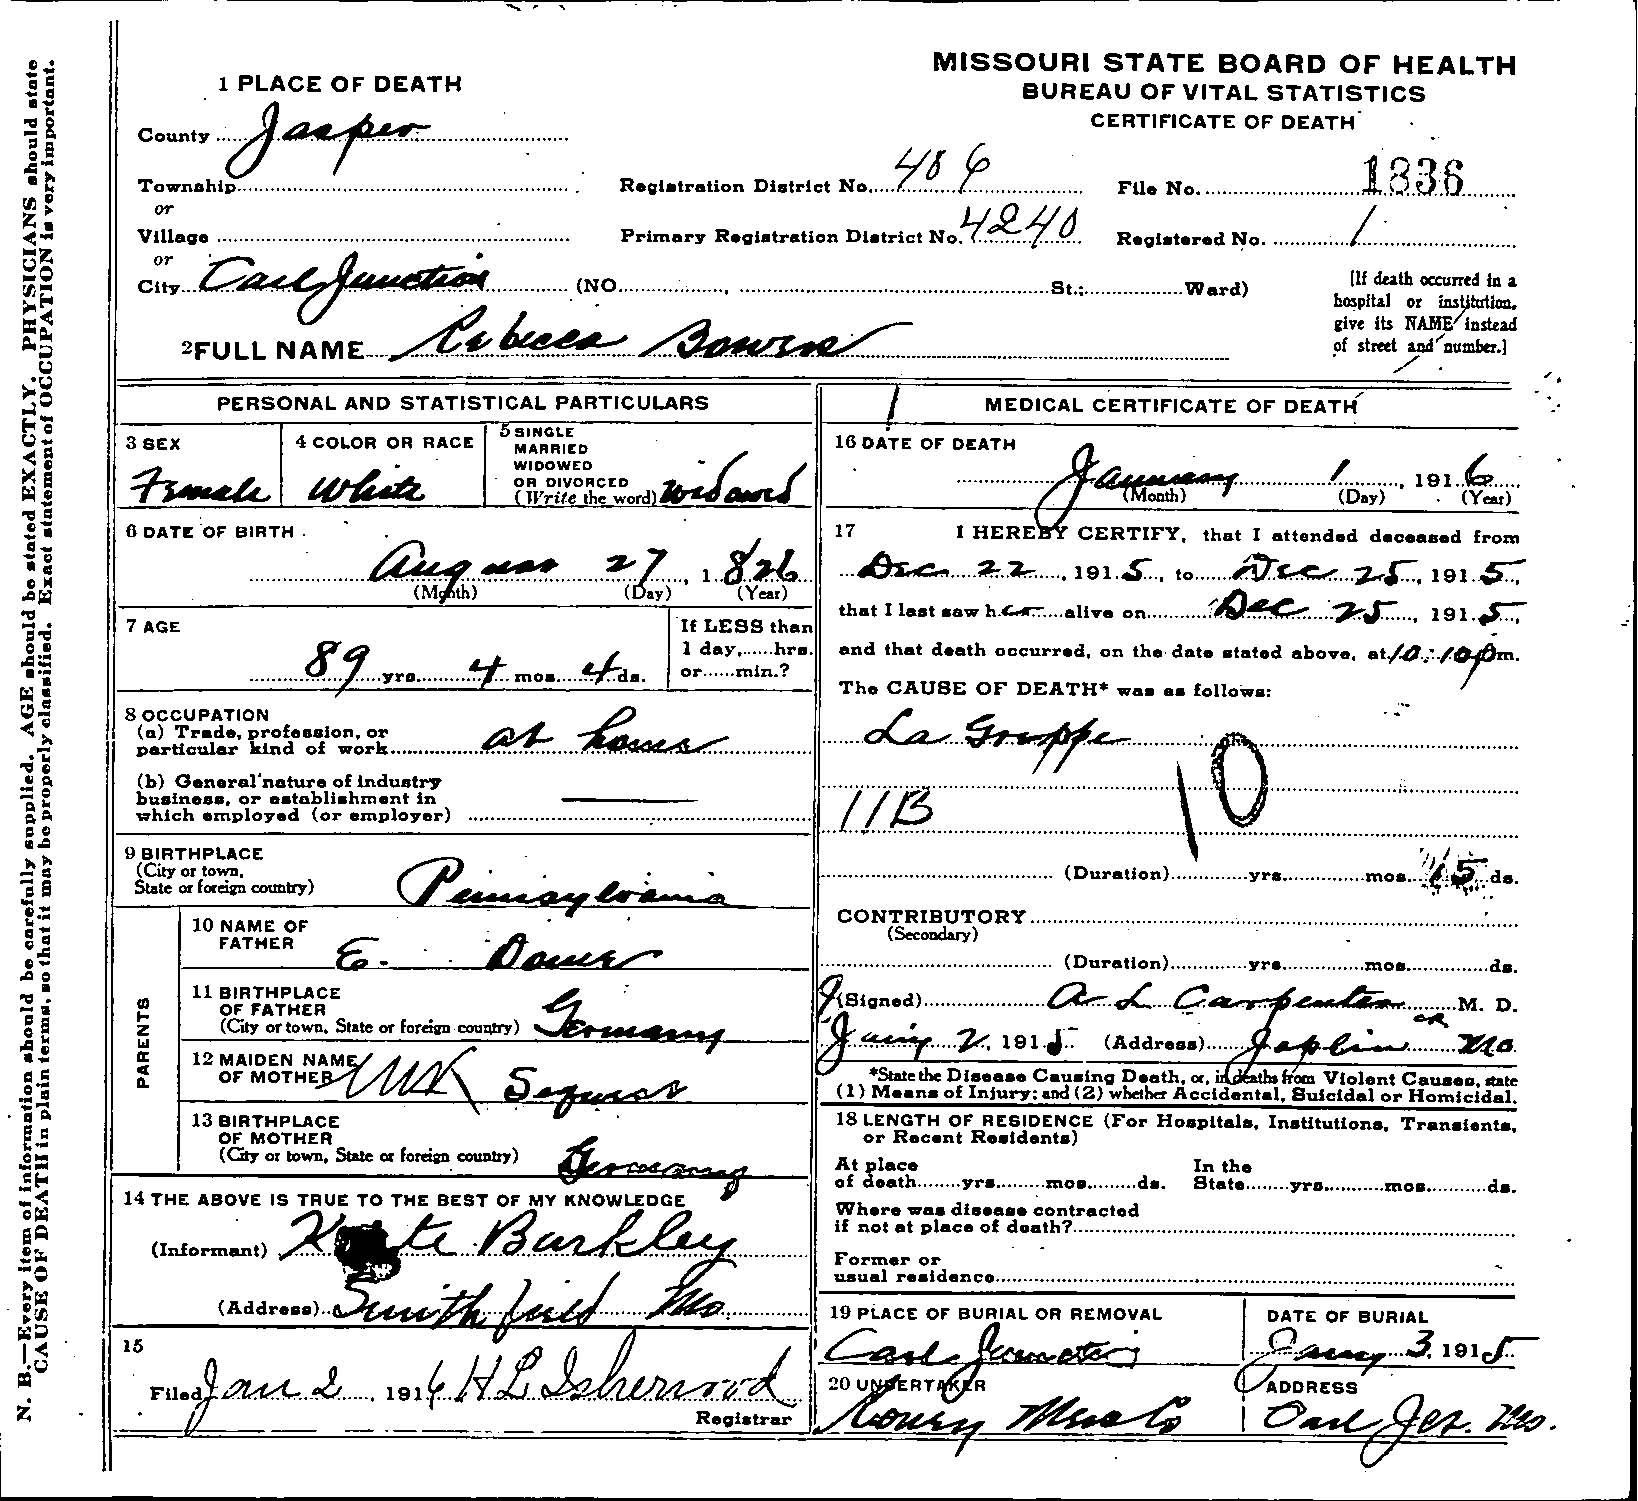 MISSOURI STATE BOARD OF HEALTH
BUREAU OF VITAL STATISTICS
CERTIFICATE OF DEATH
1 PLACE OF DEATH
County Jasper
Township
or
Village
or
City Carl Junction (NO. , St.; Ward)
Registration District No. 406
File No. 1836
Primary Registration District No. 4240
Registered No. 1
[If death occurred in a
hospital or institution,
give its NAME instead
of street and number.]
2 FULL NAME Rebecca Bowers
PERSONAL AND STATISTICAL PARTICULARS
3 SEX
Female
4 COLOR OR RACE
White
5 SINGLE
MARRIED
WIDOWED
OR DIVORCED
(Write the word) Widowed
6 DATE OF BIRTH
August 27, 1826
(Month) (Day) (Year)
7 AGE
89 yrs. 4 mos. 4 ds.
If LESS than
1 day, hrs.
or min.?
8 OCCUPATION
(a) Trade, profession, or
particular kind of work at home
(b) General nature of industry
business, or establishment in
which employed (or employer)
9 BIRTHPLACE
(City or town,
State or foreign country) Pennsylvania
PARENTS
10 NAME OF
FATHER E.
11 BIRTHPLACE
OF FATHER
(City or town, State or foreign country) Germany
12 MAIDEN NAME
OF MOTHER
13 BIRTHPLACE
OF MOTHER
(City or town, State or foreign country) Germany
14 THE ABOVE IS TRUE TO THE BEST OF MY KNOWLEDGE
(Informant) Kate Barkley
(Address) Smithfield Mo
15
Filed Jan 2, 1916 H L Isherwood
Registrar
1
MEDICAL CERTIFICATE OF DEATH
16 DATE OF DEATH
January 1, 1916
(Month) (Day) (Year)
17 I HEREBY CERTIFY, that I attended deceased from
Dec 22, 1915, to Dec 25, 1915,
that I last saw her alive on Dec 25, 1915,
and that death occurred, on the date stated above, at 10:10 pm.
The CAUSE OF DEATH* was as follows:
La Grippe
10
11B
(Duration) yrs. mos. 15 ds.
CONTRIBUTORY
(Secondary)
(Duration) yrs. mos. ds.
(Signed) A L Carpenter M. D.
Jany 2, 1915 (Address) Joplin Mo
*State the Disease Causing Death, or, in deaths from Violent Causes, state
(1) Means of Injury; and (2) whether Accidental, Suicidal or Homicidal.
18 LENGTH OF RESIDENCE (For Hospitals, Institutions, Transients,
or Recent Residents)
At place
of death yrs. mos. ds.
In the
State yrs. mos. ds.
Where was disease contracted
if not at place of death?
Former or
usual residence
19 PLACE OF BURIAL OR REMOVAL
Carl Junction
DATE OF BURIAL
Jany 3, 1915
20 UNDERTAKER
ADDRESS
Carl Jct. Mo.
N. B.—Every item of information should be carefully supplied. AGE should be stated EXACTLY. PHYSICIANS should state
CAUSE OF DEATH in plain terms, so that it may be properly classified. Exact statement of OCCUPATION is very important.